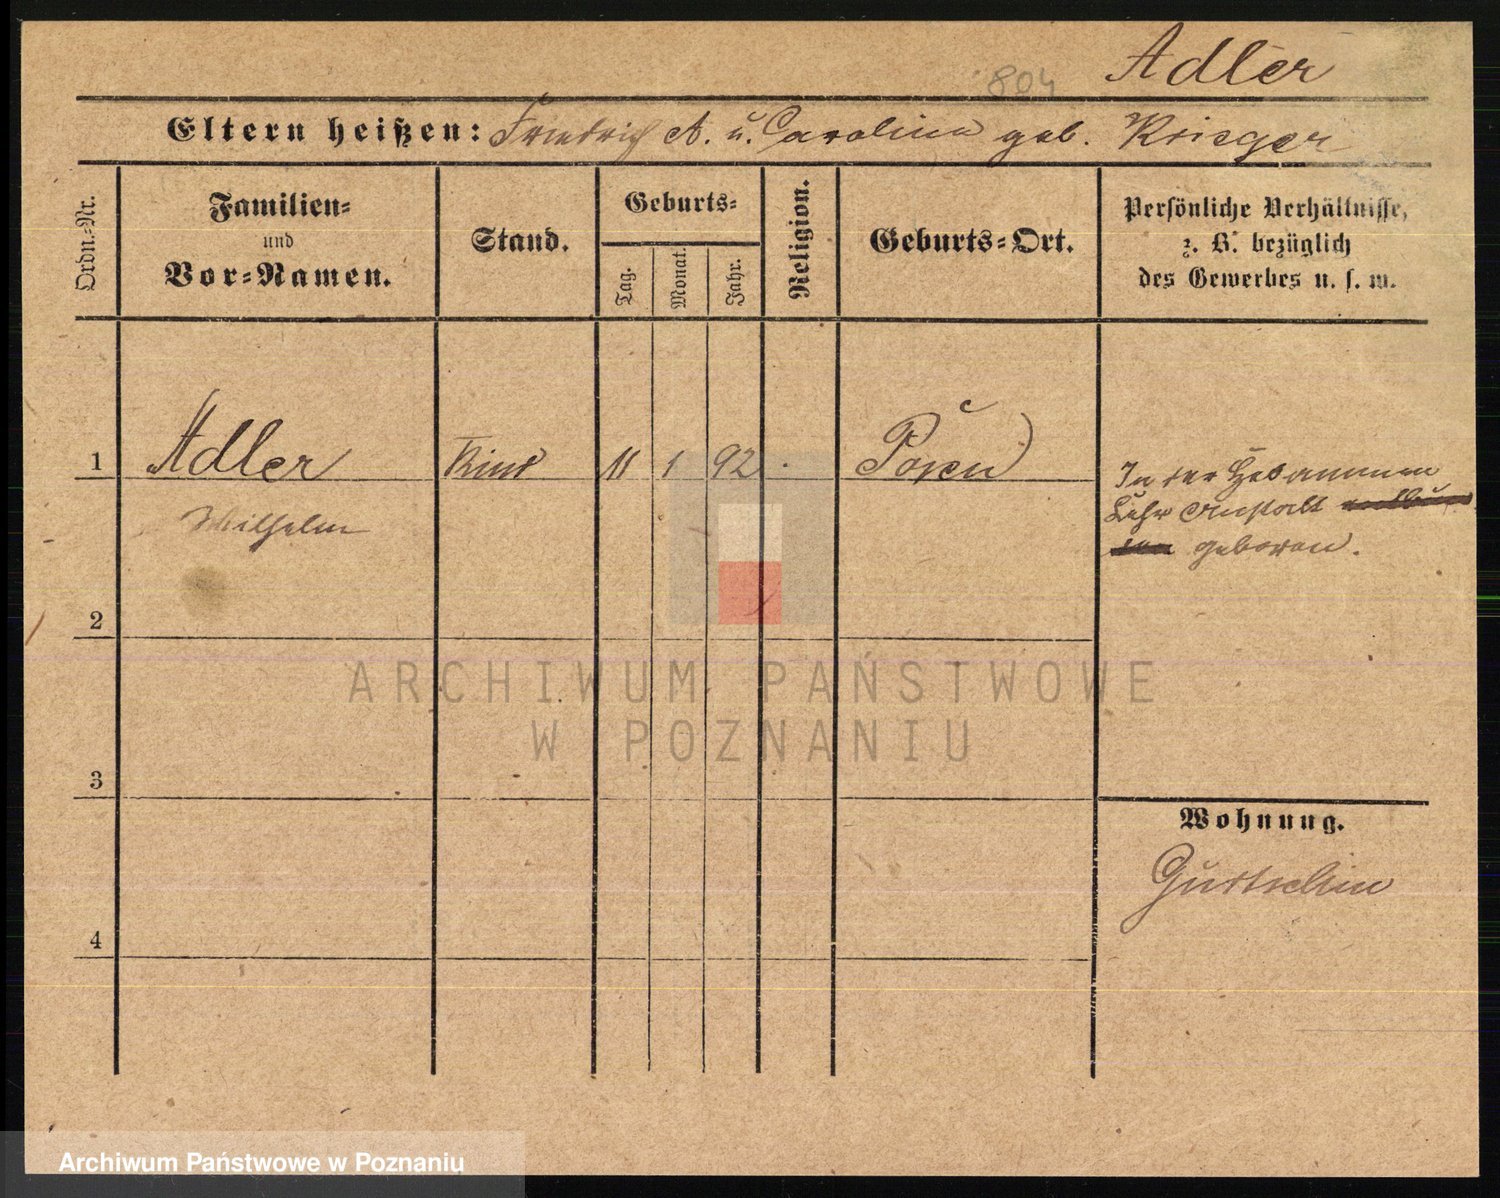 804 Adler
Eltern heißen: Friedrich A. u. Caroline geb. Krieger
Ordn.-Nr.
Familien-
und
Vor-Namen.
Stand.
Geburts-
Tag.
Monat.
Jahr.
Religion.
Geburts-Ort.
Persönliche Verhältnisse,
z. B. bezüglich
des Gewerbes u. s. w.
1 Adler Kind 11 1 92. Posen
Wilhelm
In der Hebammen
Lehr Anstalt
geboren.
2
3
4
Wohnung.
Gurtschin
ARCHIWUM PAŃSTWOWE
W POZNANIU
Archiwum Państwowe w Poznaniu